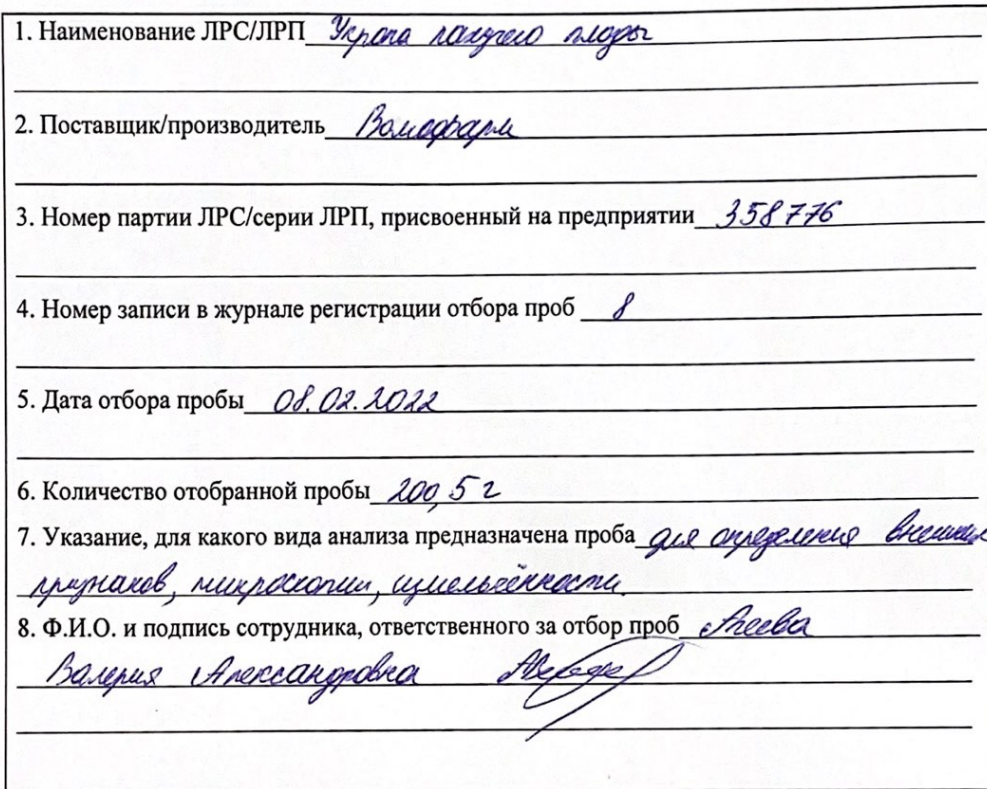 1. Наименование ЛРС/ЛРП Укропа пахучего плоды
2. Поставщик/производитель
3. Номер партии ЛРС/серии ЛРП, присвоенный на предприятии 358776
4. Номер записи в журнале регистрации отбора проб 8
5. Дата отбора пробы 08.02.2022
6. Количество отобранной пробы 200,5 г
7. Указание, для какого вида анализа предназначена проба для определения внешних
признаков, микроскопии, измельчённости.
8. Ф.И.О. и подпись сотрудника, ответственного за отбор проб
Валерия Александровна